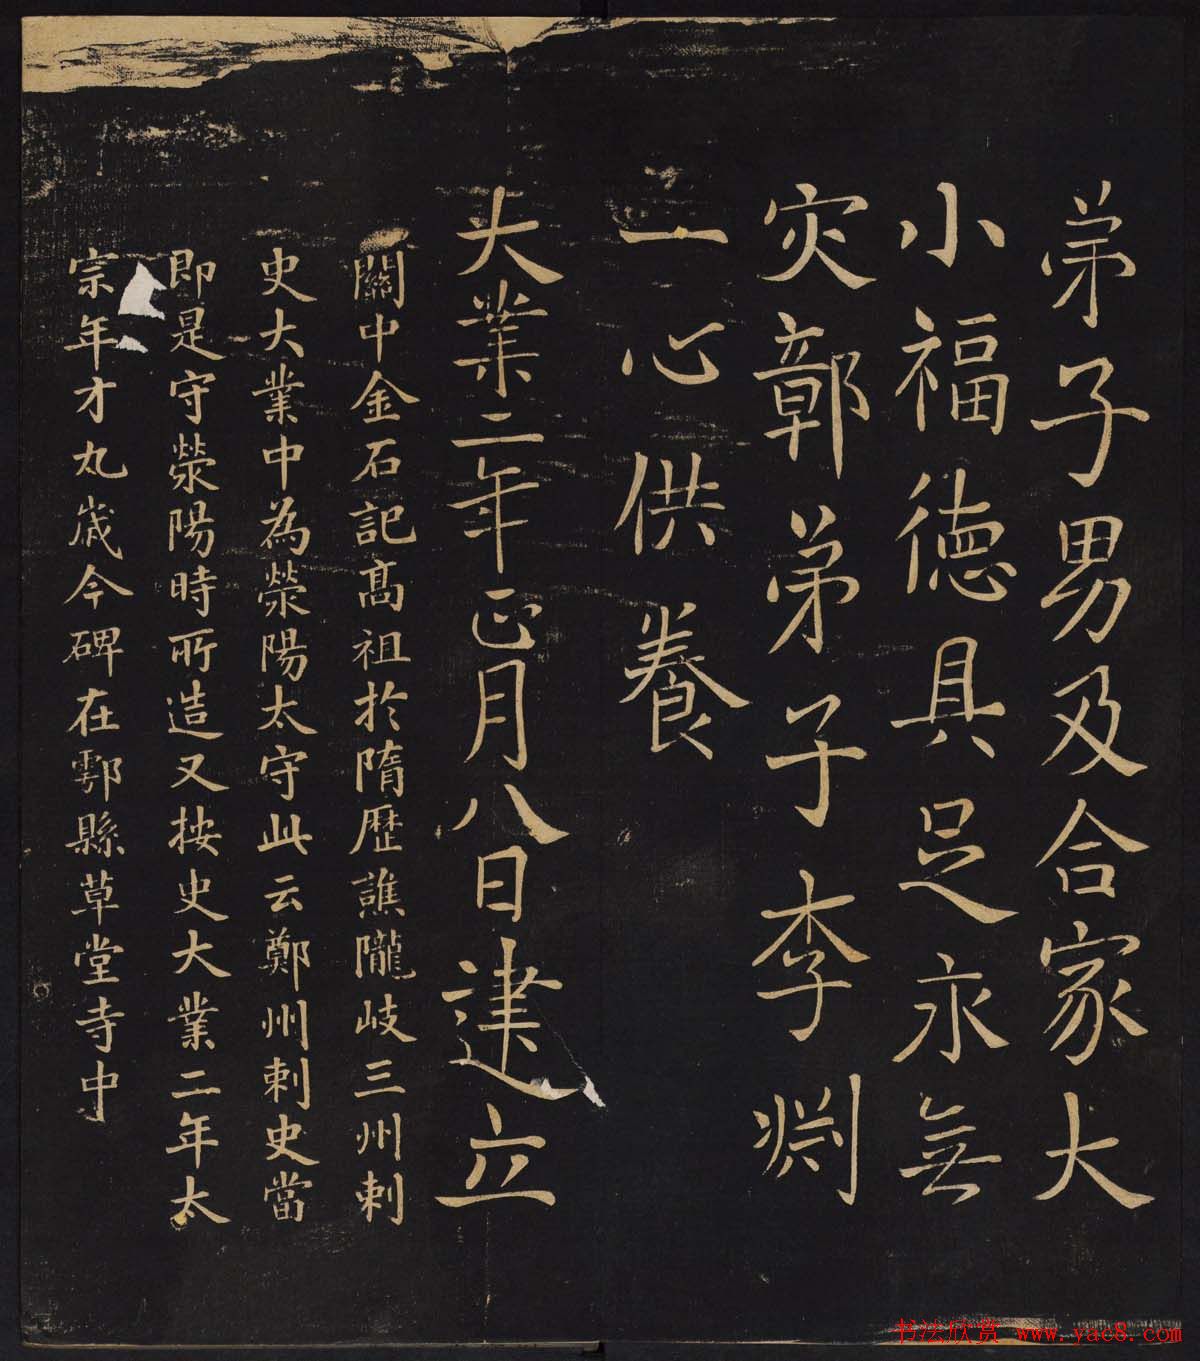 弟子男及合家大
小福德具足永無
灾鄣弟子李渊
一心供養
大業二年正月八日建立
關中金石記髙祖於隋歷譙隴岐三州刺
史大業中為滎陽太守此云鄭州刺史當
即是守滎陽時所造又按史大業二年太
宗年才九歲今碑在鄠縣草堂寺中
书法欣赏 www.yac8.com